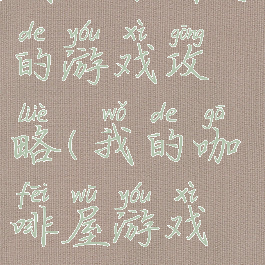 de yóu xì gōng
的游戏攻
lüè wǒ de gā
略(我的咖
fēi wū yóu xì
啡屋游戏